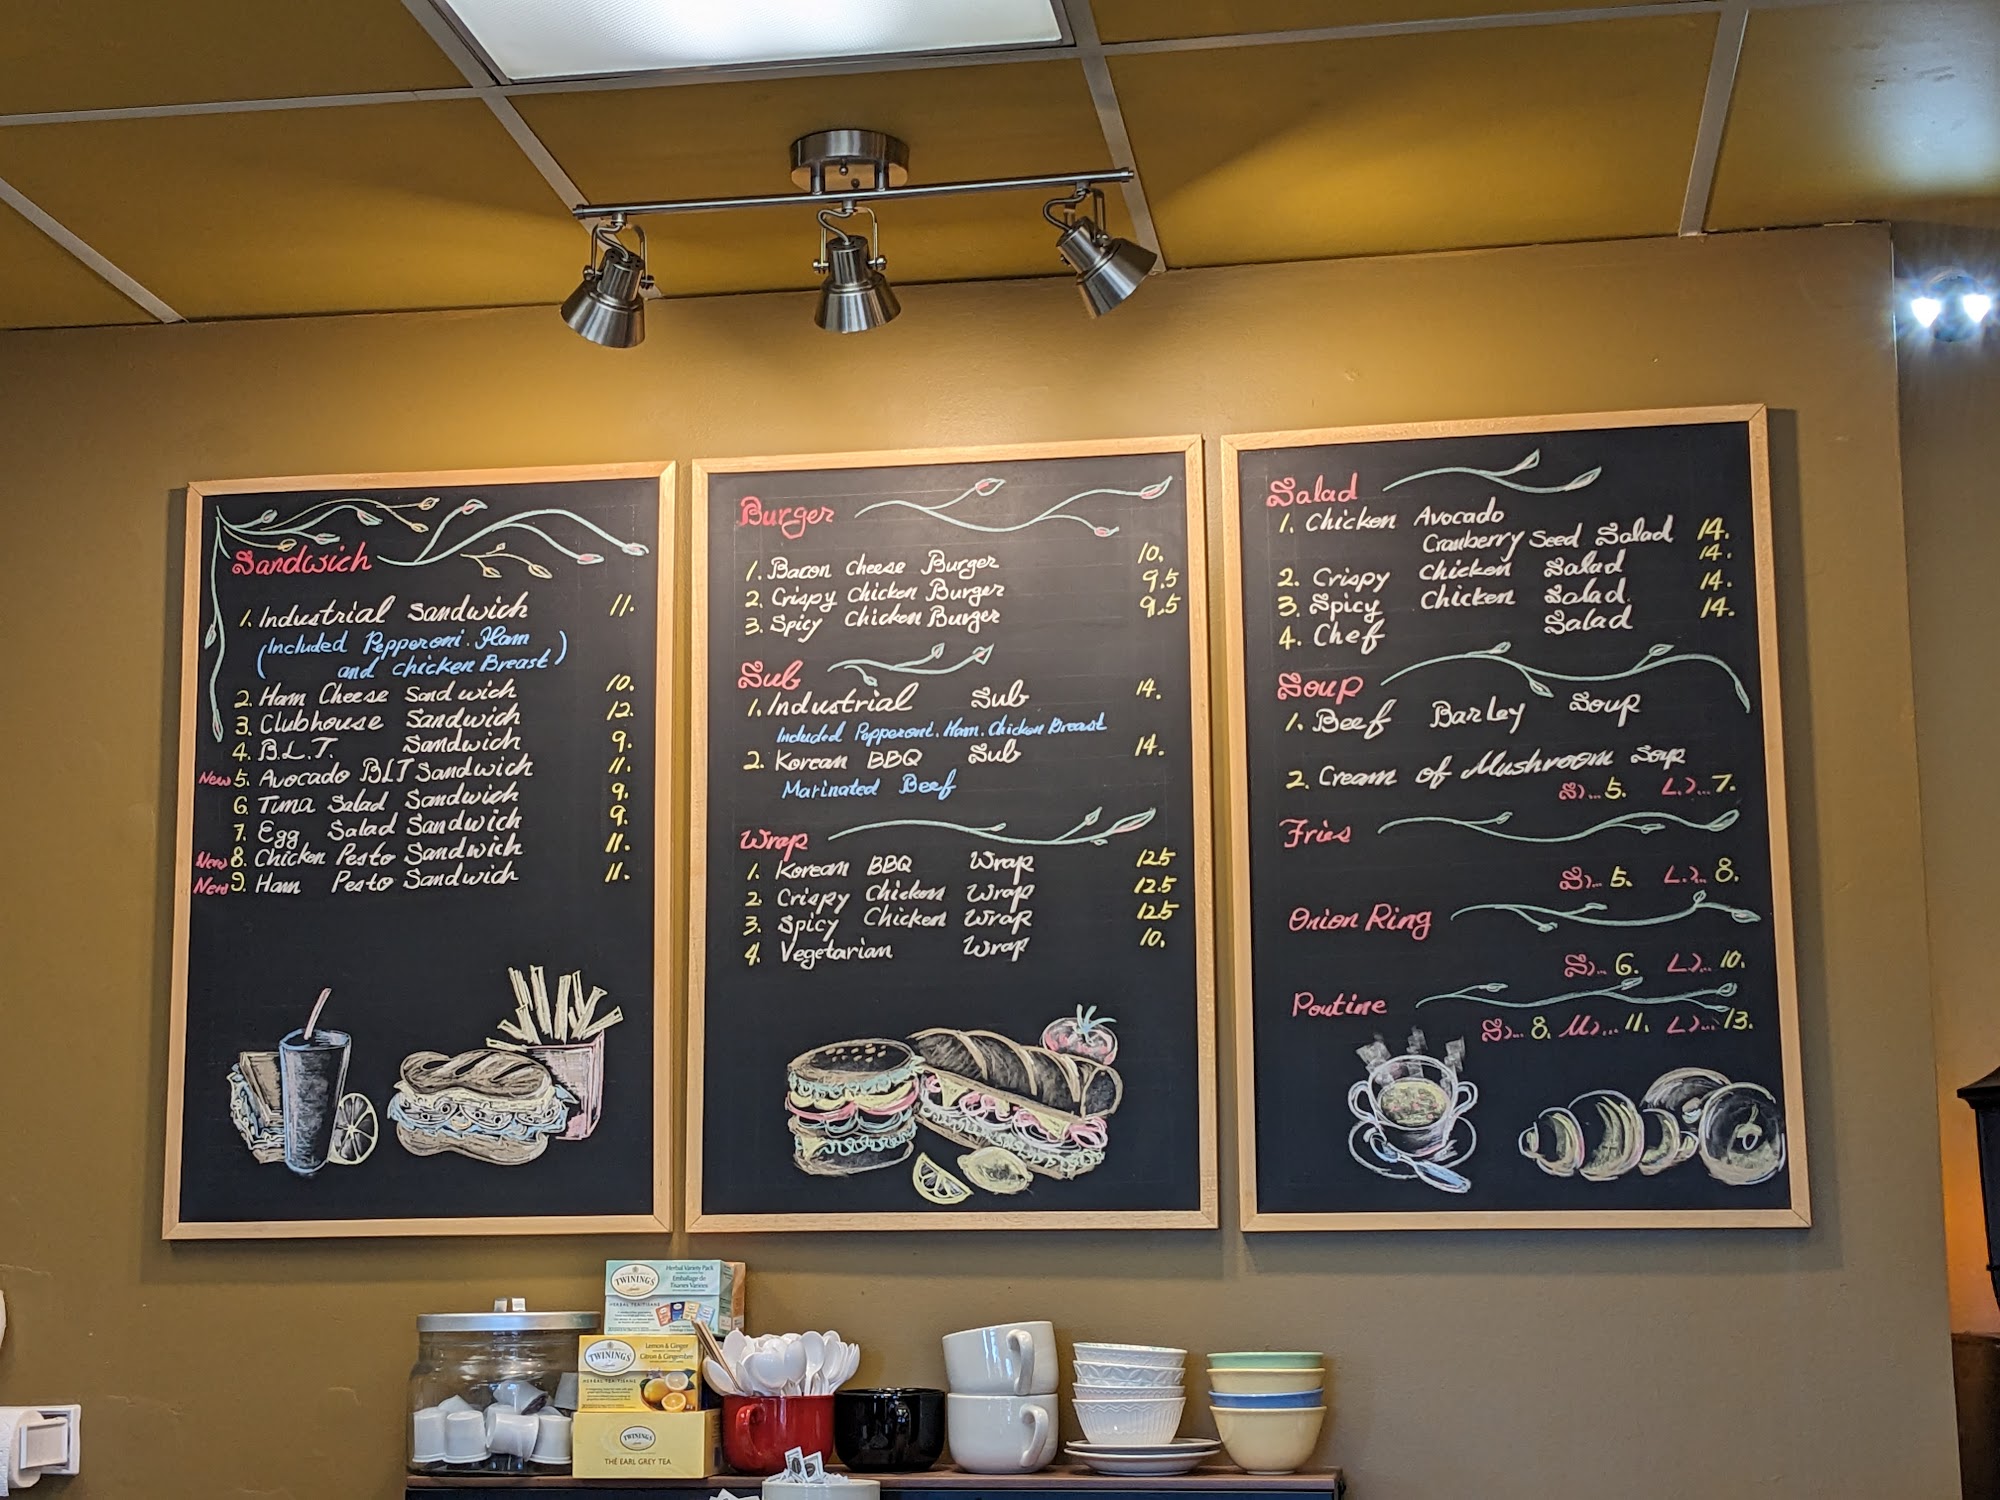 Sandwich
1. Industrial Sandwich 11.
(Included Pepperoni. Ham
and Chicken Breast)
2. Ham Cheese Sandwich 10.
3. Clubhouse Sandwich 12.
4. B.L.T. Sandwich 9.
New 5. Avocado BLT Sandwich 11.
6. Tuna Salad Sandwich 9.
7. Egg Salad Sandwich 9.
New 8. Chicken Pesto Sandwich 11.
New 9. Ham Pesto Sandwich 11.
Burger
1. Bacon Cheese Burger 10.
2. Crispy Chicken Burger 9.5
3. Spicy Chicken Burger 9.5
Sub
1. Industrial Sub 14.
Included Pepperoni. Ham. Chicken Breast
2. Korean BBQ Sub 14.
Marinated Beef
Wrap
1. Korean BBQ Wrap 12.5
2. Crispy Chicken Wrap 12.5
3. Spicy Chicken Wrap 12.5
4. Vegetarian Wrap 10.
Salad
1. Chicken Avocado
Cranberry Seed Salad 14.
2. Crispy Chicken Salad 14.
3. Spicy Chicken Salad. 14.
4. Chef Salad 14.
Soup
1. Beef Barley Soup
2. Cream of Mushroom Soup
S)... 5. L)... 7.
Fries
S)... 5. L)... 8.
Onion Ring
S)... 6. L)... 10.
Poutine
S)... 8. M)... 11. L)... 13.
TWININGS
Herbal Variety Pack
Emballage de
Tisanes Variées
HERBAL TEA/TISANE
TWININGS
Lemon & Ginger
Citron & Gingembre
HERBAL TEA/TISANE
TWININGS
THÉ EARL GREY TEA